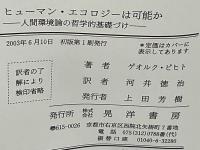 ヒューマン・エコロジーは可能か
——人間環境論の哲学的基礎づけ——
2003年6月10日 初版第1刷発行
*定価はカバーに
表示してあります
訳者の了
解により
検印省略
著者 ゲオルク・ピヒト
訳者 河井徳治
発行者 上田芳樹
発行所 株式会社 晃洋書房
〒615-0026 京都市右京区西院北矢掛町7番地
電話 075(312)0788番(代)
振替口座 01040-6-32280